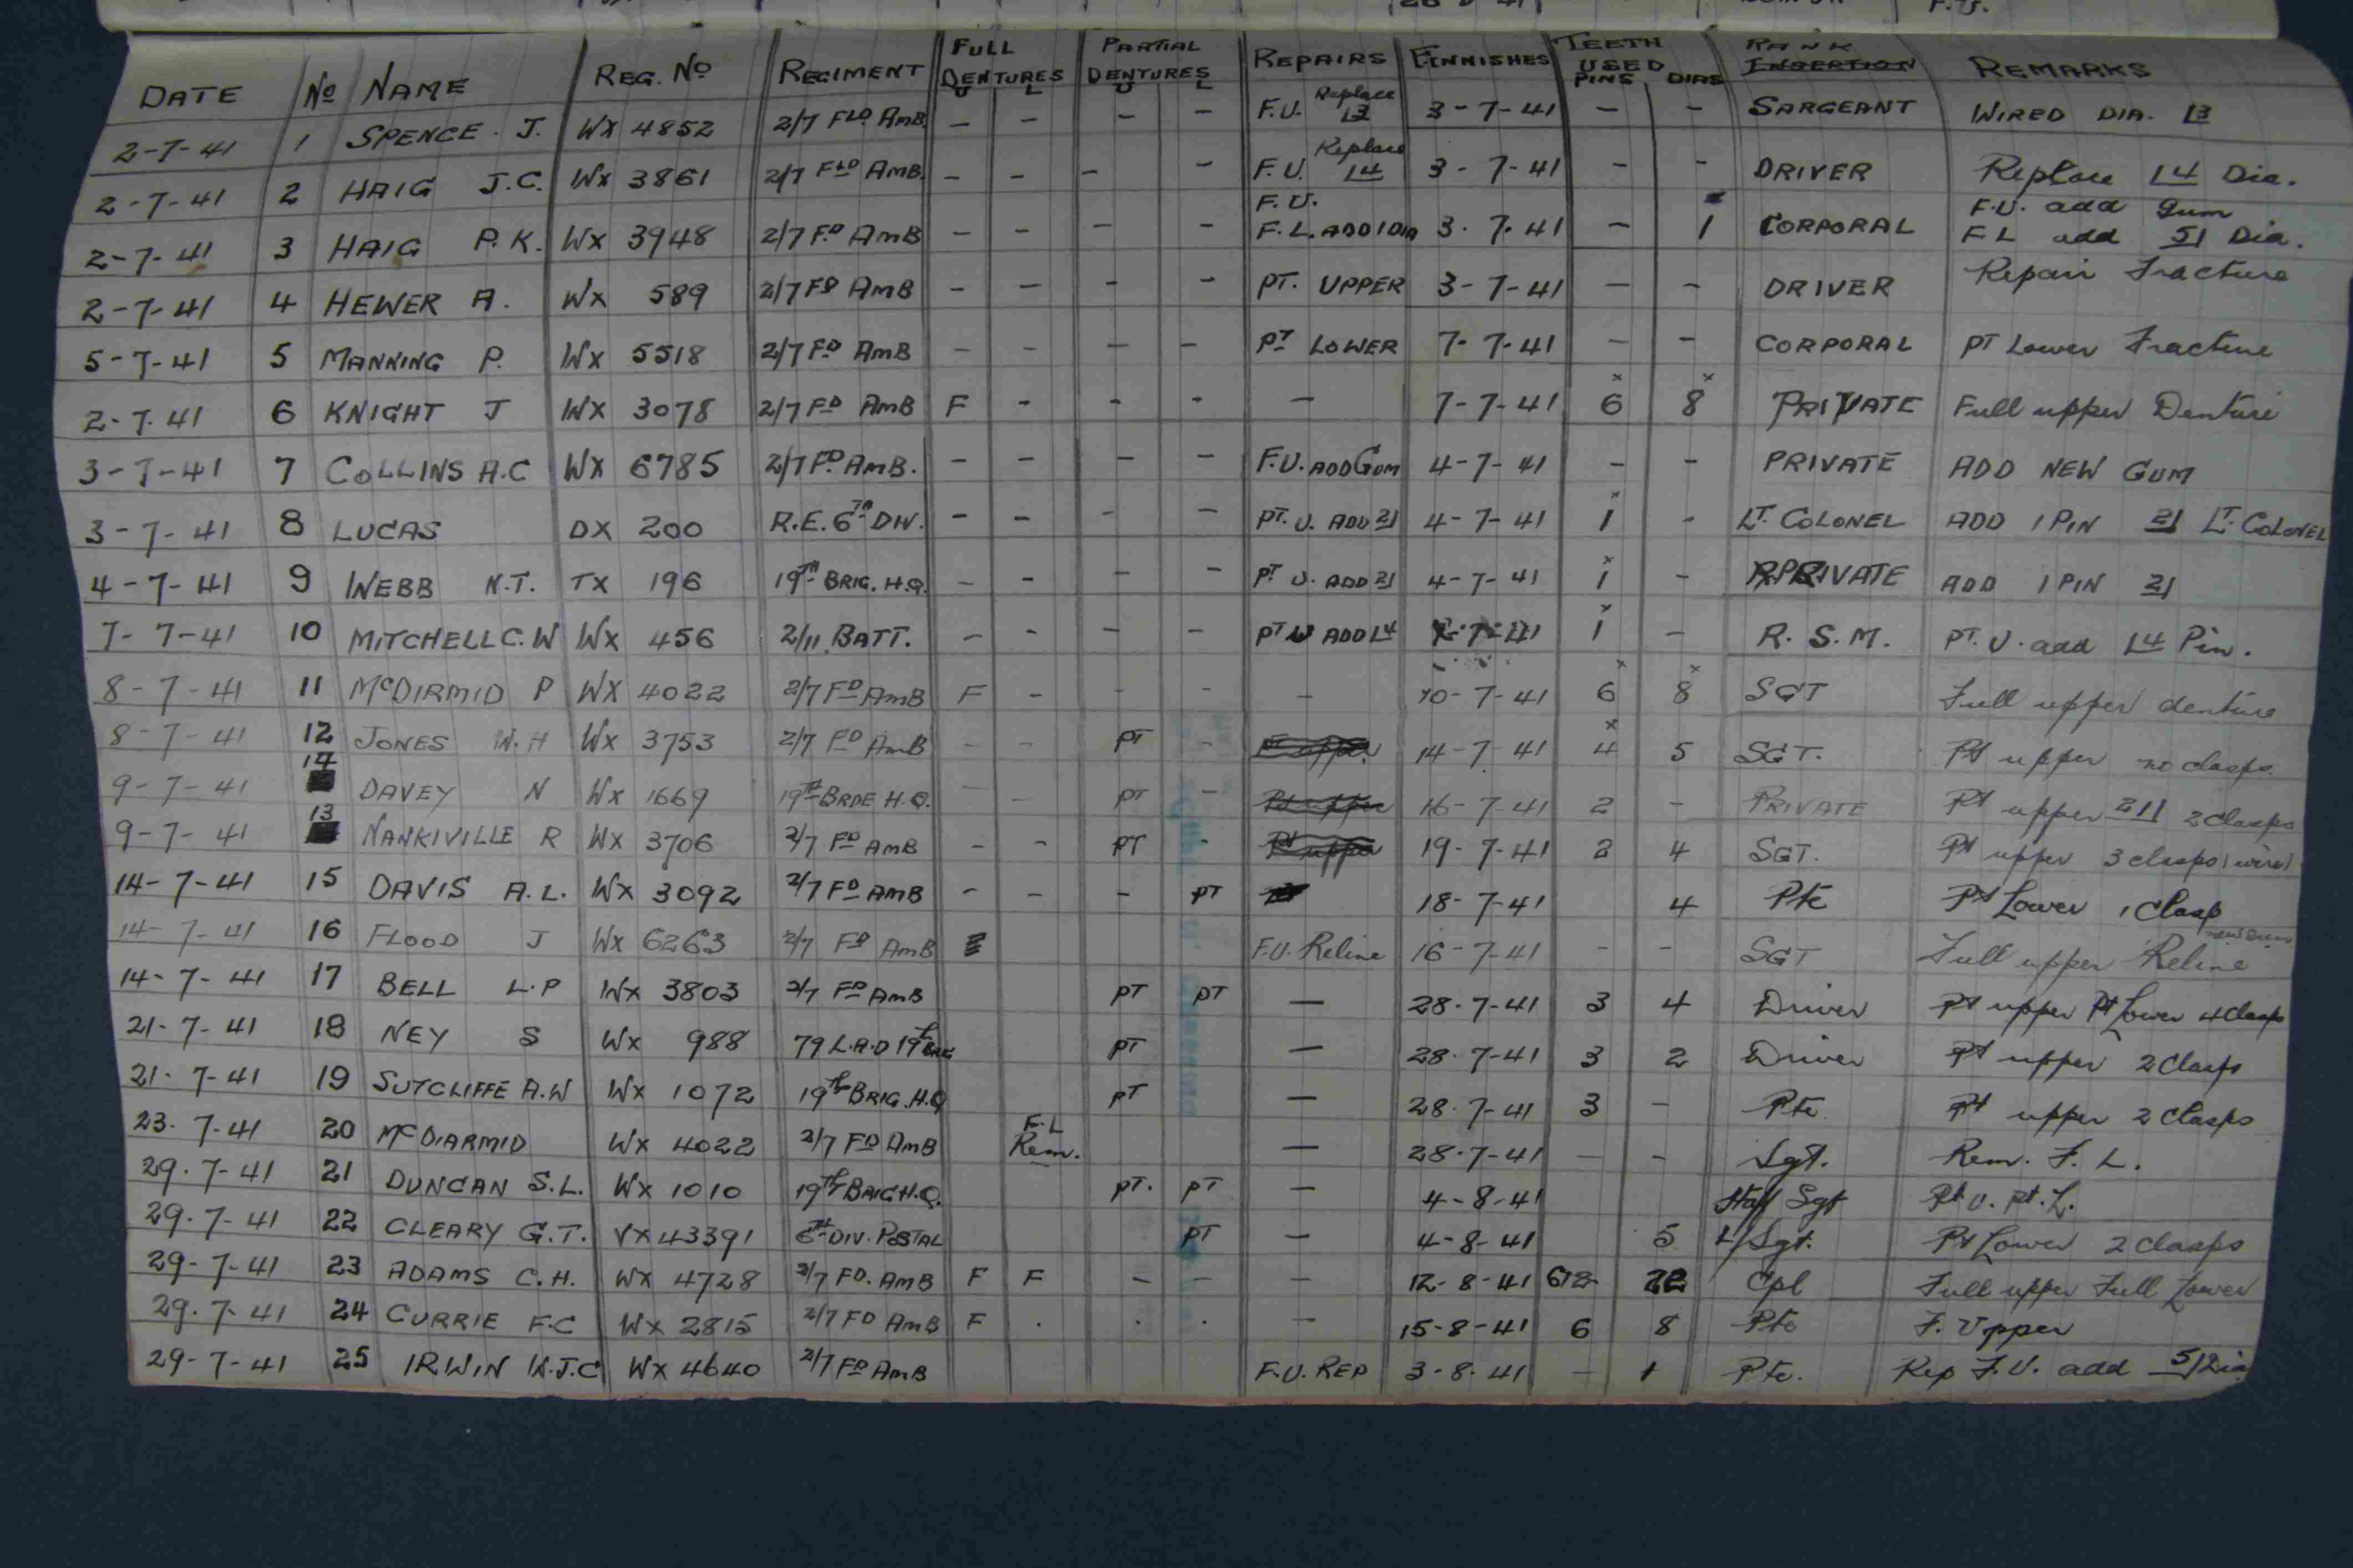 DATE No NAME REG. No REGIMENT FULL DENTURES U L PARTIAL DENTURES U L REPAIRS FINNISHES TEETH USED PINS DIAS RANK INSERTION REMARKS
2-7-41 1 SPENCE. J. WX 4852 2/7 FLD AMB. - - - - F.U. Replace 13 3-7-41 - - SARGEANT WIRED DIA. 13
2-7-41 2 HAIG J.C. WX 3861 2/7 FLD AMB. - - - - F.U. Replace 14 3-7-41 - - DRIVER Replace 14 Dia.
2-7-41 3 HAIG P.K. WX 3948 2/7 FD AMB - - - - F.U. F.L. ADD 1 DIA 3.7.41 - 1 CORPORAL F.U. add gum F L add 51 Dia.
2-7-41 4 HEWER A. WX 589 2/7 FD AMB - - - - PT. UPPER 3-7-41 - - DRIVER Repair Fracture
5-7-41 5 MANNING P. WX 5518 2/7 FD AMB - - - - PT LOWER 7-7-41 - - CORPORAL PT Lower Fracture
2-7-41 6 KNIGHT J WX 3078 2/7 FD AMB F - - - - 7-7-41 6 x 8 x PRIVATE Full upper Denture
3-7-41 7 COLLINS A.C WX 6785 2/7 FD AMB. - - - - F.U. ADD GUM 4-7-41 - - PRIVATE ADD NEW GUM
3-7-41 8 LUCAS DX 200 R.E. 6TH DIV. - - - - PT. U. ADD 21 4-7-41 1 x - LT. COLONEL ADD 1 PIN 21 LT. COLONEL
4-7-41 9 WEBB N.T. TX 196 19TH BRIG. H.Q. - - - - PT U. ADD 21 4-7-41 1 x - PRIVATE ADD 1 PIN 21
7-7-41 10 MITCHELL C.W WX 456 2/11 BATT. - - - - PT U ADD 14 -7-41 1 x - R.S.M. PT. U. add 14 Pin.
8-7-41 11 McDIRMID P WX 4022 2/7 FD AMB F - - - - 10-7-41 6 x 8 x SGT Full upper denture
8-7-41 12 JONES W.H WX 3753 2/7 FD AMB - - PT - Pt upper 14-7-41 4 x 5 SGT. Pt upper no clasps.
9-7-41 14 DAVEY N WX 1669 19TH BRDE H.Q. - - PT - Pt upper 16-7-41 2 - PRIVATE Pt upper 211 2 Clasps
9-7-41 13 NANKIVILLE R WX 3706 2/7 FD AMB - - PT - Pt upper 19-7-41 2 4 SGT. Pt upper 3 clasps 1 wire
14-7-41 15 DAVIS A.L. WX 3092 2/7 FD AMB - - - PT 18-7-41 4 Pte Pt Lower 1 Clasp
14-7-41 16 FLOOD J WX 6263 2/7 FD AMB F.U. Reline 16-7-41 - - SGT Full upper Reline
14-7-41 17 BELL L.P WX 3803 2/7 FD AMB PT PT - 28.7-41 3 4 Driver Pt upper Pt Lower 4 Clasps
21-7-41 18 NEY S WX 988 79 L.A.D 19th BRIG PT - 28.7-41 3 2 Driver Pt upper 2 Clasps
21.7-41 19 SUTCLIFFE A.W WX 1072 19th BRIG.H.Q PT - 28.7-41 3 - Pte. Pt upper 2 Clasps
23.7-41 20 McDIARMID WX 4022 2/7 FD AMB F.L Rem. - 28.7-41 - - Sgt. Rem. F. L.
29.7-41 21 DUNCAN S.L. WX 1010 19th BRIG H.Q. PT. PT - 4-8-41 Staff Sgt Pt U. Pt. L.
29.7-41 22 CLEARY G.T. VX 43391 6TH DIV. POSTAL PT - 4-8-41 5 L/Sgt. Pt Lower 2 Clasps
29-7-41 23 ADAMS C.H. WX 4728 2/7 FD. AMB F F - - - 12-8-41 Cpl Full upper Full Lower
29.7-41 24 CURRIE F.C WX 2815 2/7 FD AMB F . . . - 15-8-41 6 8 Pte F. Upper
29-7-41 25 IRWIN K.J.C WX 4640 2/7 FD AMB F.U. REP 3-8-41 - 1 Pte. Rep F.U. add 51 Dia